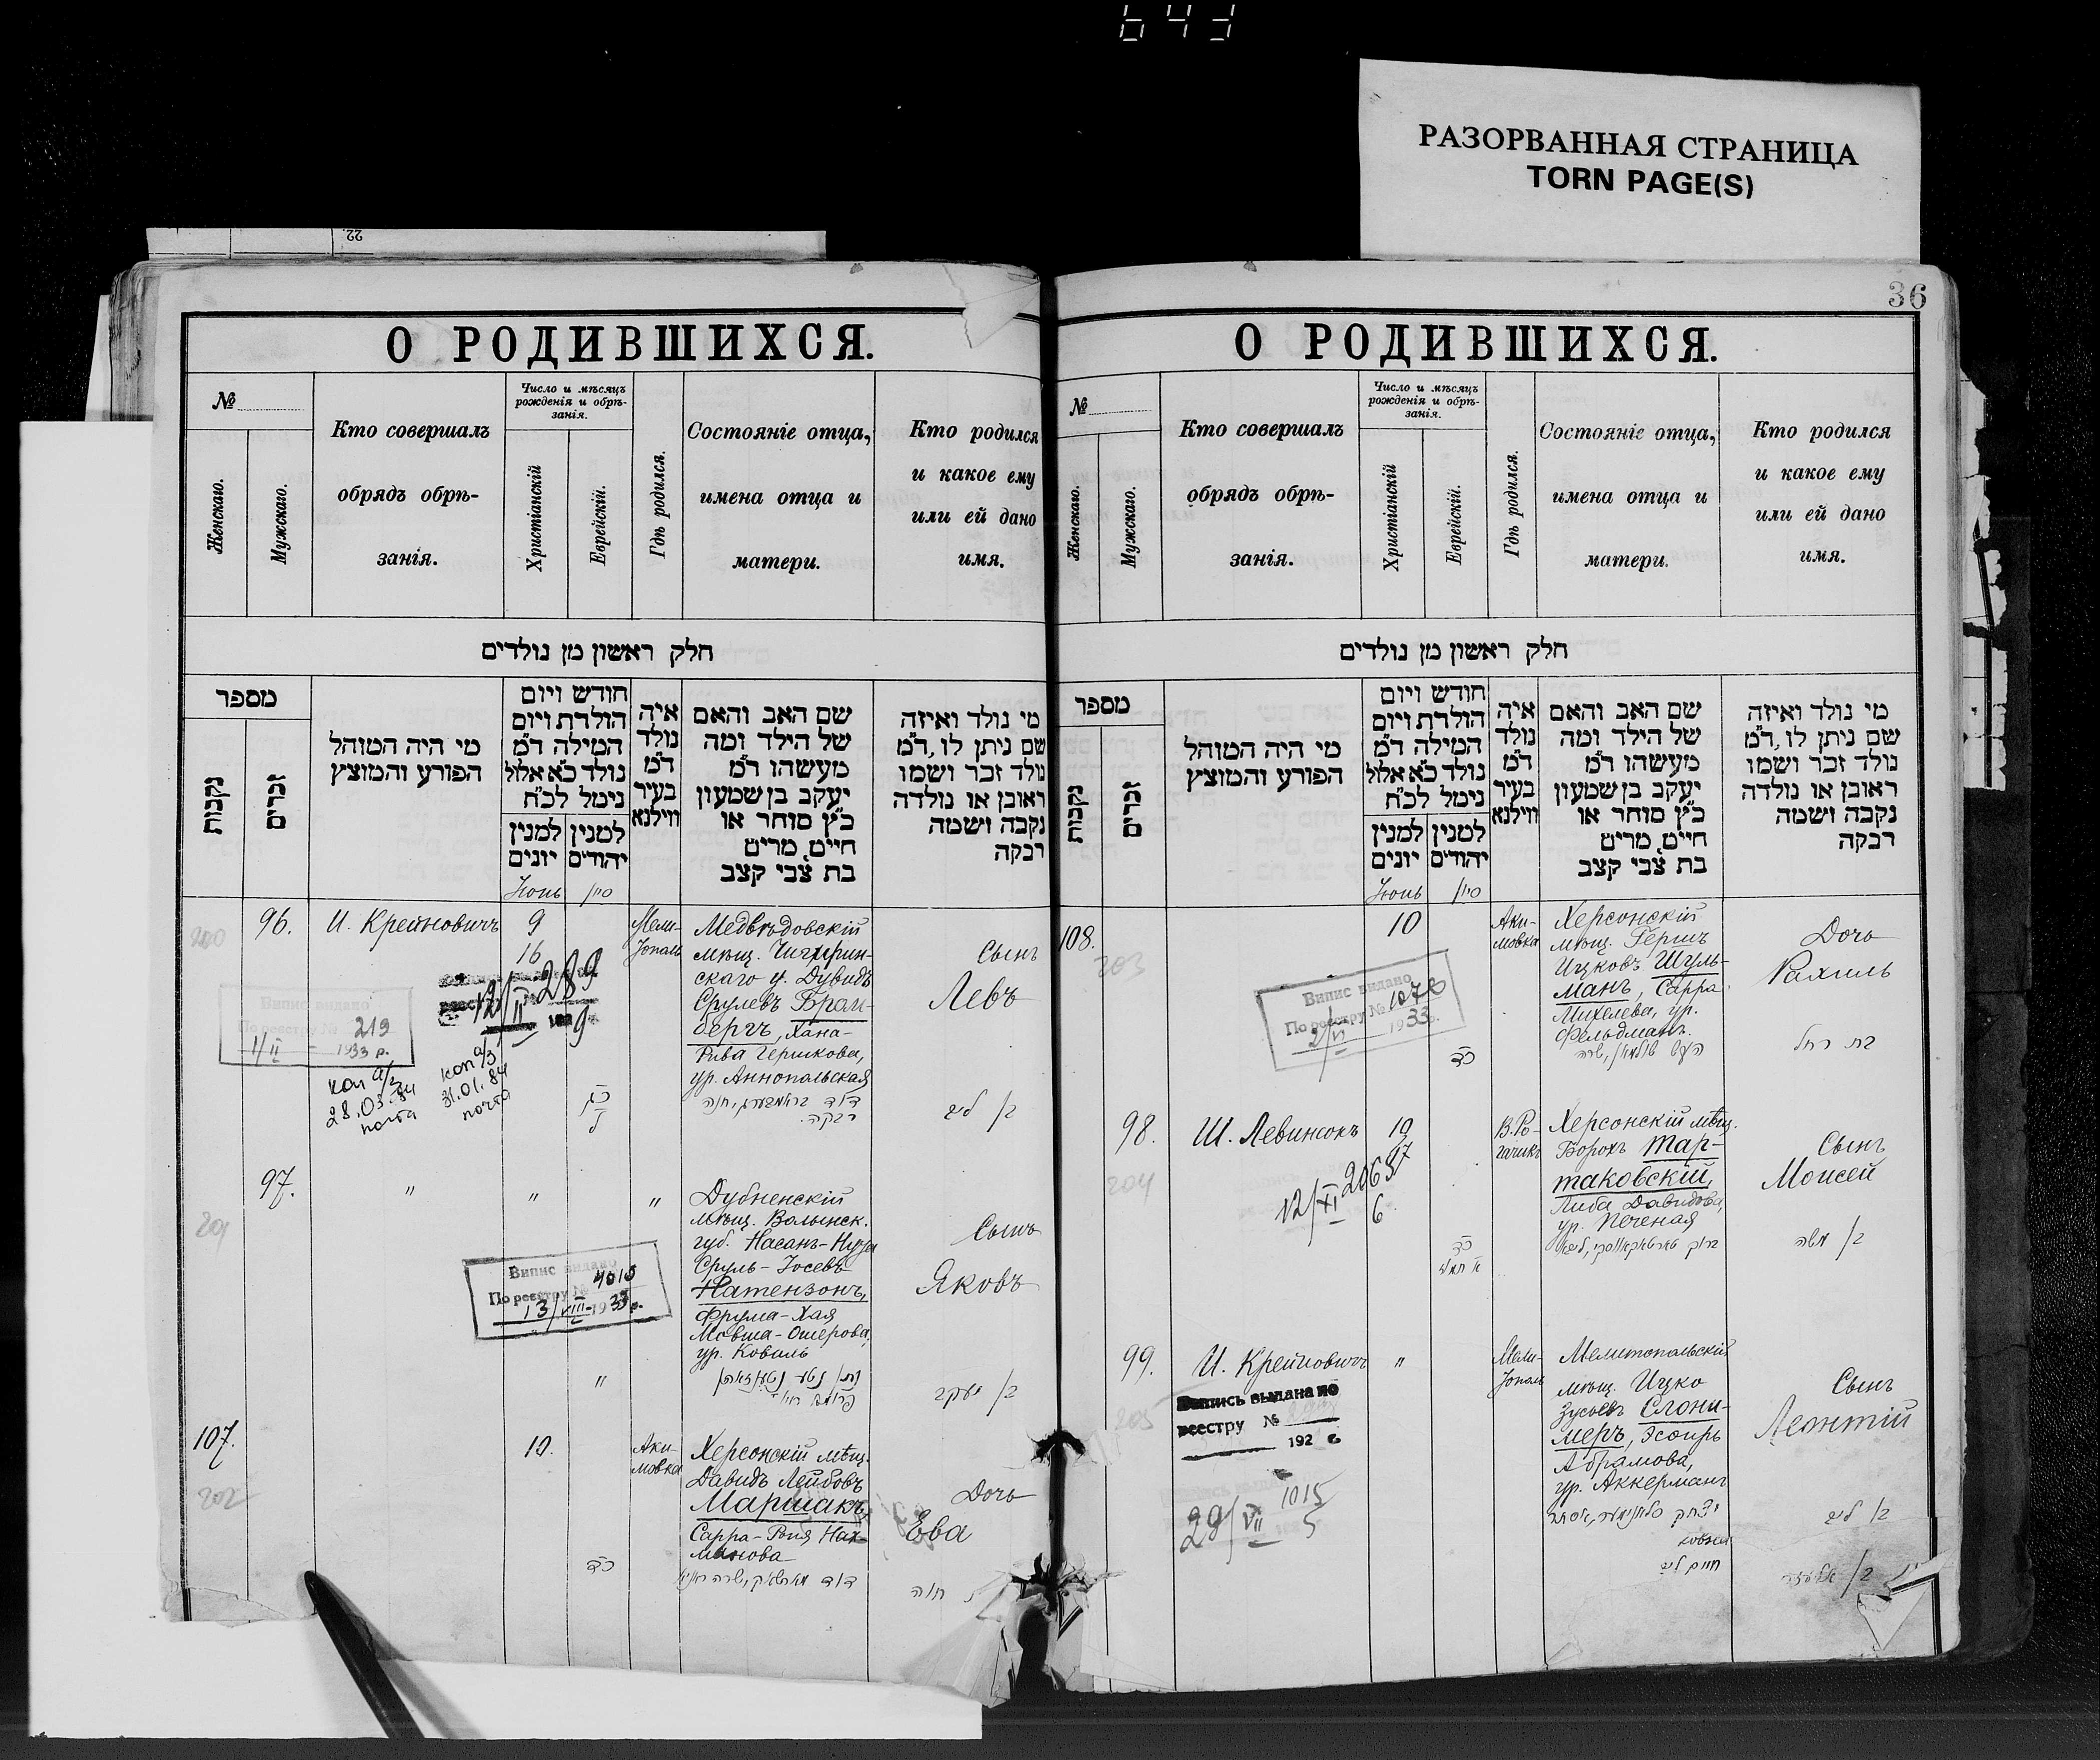 643
РАЗОРВАННАЯ СТРАНИЦА
TORN PAGE(S)
22
О РОДИВШИХСЯ.
№
Женскаго.
Мужскаго.
Кто совершалъ
обрядъ обрѣ-
занія.
Число и мѣсяцъ
рожденія и обрѣ-
занія.
Христіанскій
Еврейскій.
Гдѣ родился.
Состояніе отца,
имена отца и
матери.
Кто родился
и какое ему
или ей дано
имя.
חלק ראשון מן נולדים
מספר
נקבות
זכרים
מי היה המוהל
הפורע והמוצץ
חודש ויום
הולדת ויום
המילה ד״מ
נולד כ״א אלול
נימל לכ״ח
למנין
יונים
למנין
יהודים
איה
נולד
ד״מ
בעיר
ווילנא
שם האב והאם
של הילד ומה
מעשהו ד״מ
יעקב בן שמעון
כ״ץ סוחר או
חייט, מרים
בת צבי קצב
מי נולד ואיזה
שם ניתן לו, ד״מ
נולד זכר ושמו
ראובן או נולדה
נקבה ושמה
רבקה
Іюнь
סיון
200
96.
И. Крейновичъ
9
16
Мели-
тополь
Медвѣдовскій
мѣщ. Чигирин-
скаго у. Дувидъ
Срулевъ Бром-
бергъ, Хана-
Рива Гершкова,
ур. Аннопольская
רבקה.
Сынъ
Левъ
בן ליב
289
12/II
9
Випис видано
По реестру № 219
1/II 1933 р.
коп а/з
28.03.84
почта
коп а/з
31.01.84
почта
201
97.
"
"
"
Дубненскій
мѣщ. Волынск.
губ. Насанъ-Нута
Сруль-Іосевъ
Натензонъ,
Фрума-Хая
Мовша-Ошерова,
ур. Ковиль
"
Сынъ
Яковъ
בן יעקב
Випис видано
По реестру № 4015
13/VIII 1933 р.
107.
202
10.
Аки-
мовка
Херсонскій мѣщ.
Давидъ Лейбовъ
Маршакъ,
Сарра-Роня Нах-
манова
כד
Дочь
Ева
חוה
36
О РОДИВШИХСЯ.
№
Женскаго.
Мужскаго.
Кто совершалъ
обрядъ обрѣ-
занія.
Число и мѣсяцъ
рожденія и обрѣ-
занія.
Христіанскій
Еврейскій.
Гдѣ родился.
Состояніе отца,
имена отца и
матери.
Кто родился
и какое ему
или ей дано
имя.
חלק ראשון מן נולדים
מספר
נקבות
זכרים
מי היה המוהל
הפורע והמוצץ
חודש ויום
הולדת ויום
המילה ד״מ
נולד כ״א אלול
נימל לכ״ח
למנין
יונים
למנין
יהודים
איה
נולד
ד״מ
בעיר
ווילנא
שם האב והאם
של הילד ומה
מעשהו ד״מ
יעקב בן שמעון
כ״ץ סוחר או
חייט, מרים
בת צבי קצב
מי נולד ואיזה
שם ניתן לו, ד״מ
נולד זכר ושמו
ראובן או נולדה
נקבה ושמה
רבקה
Іюнь
סיון
108.
203
10
Аки-
мовка
Херсонскій
мѣщ. Гершъ
Ицковъ Шуль-
манъ, Сарра
Михелева, ур.
Фельдманъ.
כד
Дочь
Рахиль
בת רחל
Випис видано
По реестру № 1078
2/VI 1933 р.
98.
204
Ш. Левинсонъ
10
17
В. Ро-
гачикъ
Херсонскій мѣщ.
Борохъ Тар-
таковскій,
Либа Давидова,
ур. Печеная
כד
Сынъ
Моисей
בן משה
2065
12/XI
6
99.
205
И. Крейновичъ
"
Мели-
тополь
Мелитопольскій
мѣщ. Ицко
Зусьевъ Слони-
меръ, Эсѳирь
Абрамова,
ур. Аккерманъ
חיים ליב
Сынъ
Леонтій
בן ליב
Выпись выдана по
реестру №
192 г.
1015
29/VII 5